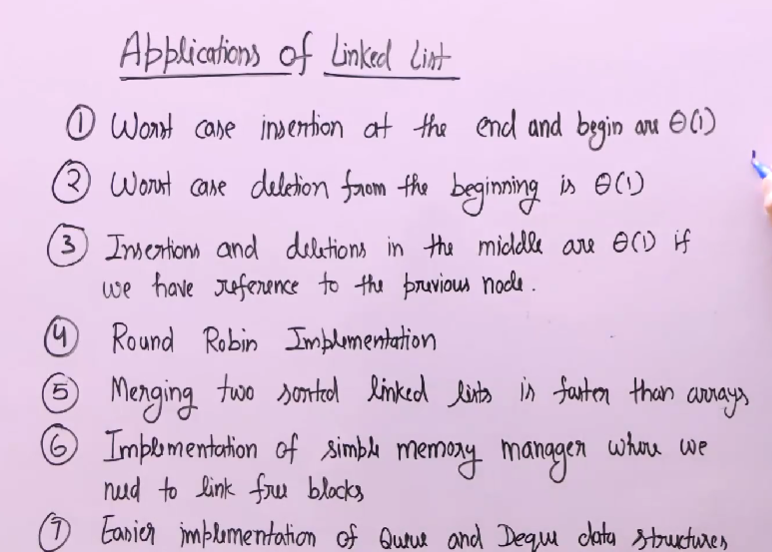 Applications of Linked List
① Worst case insertion at the end and begin are θ(1)
② Worst case deletion from the beginning is θ(1)
③ Insertions and deletions in the middle are θ(1) if
we have reference to the previous node.
④ Round Robin Implementation
⑤ Merging two sorted linked lists is faster than arrays
⑥ Implementation of simple memory manager where we
need to link free blocks
⑦ Easier implementation of Queue and Deque data structures